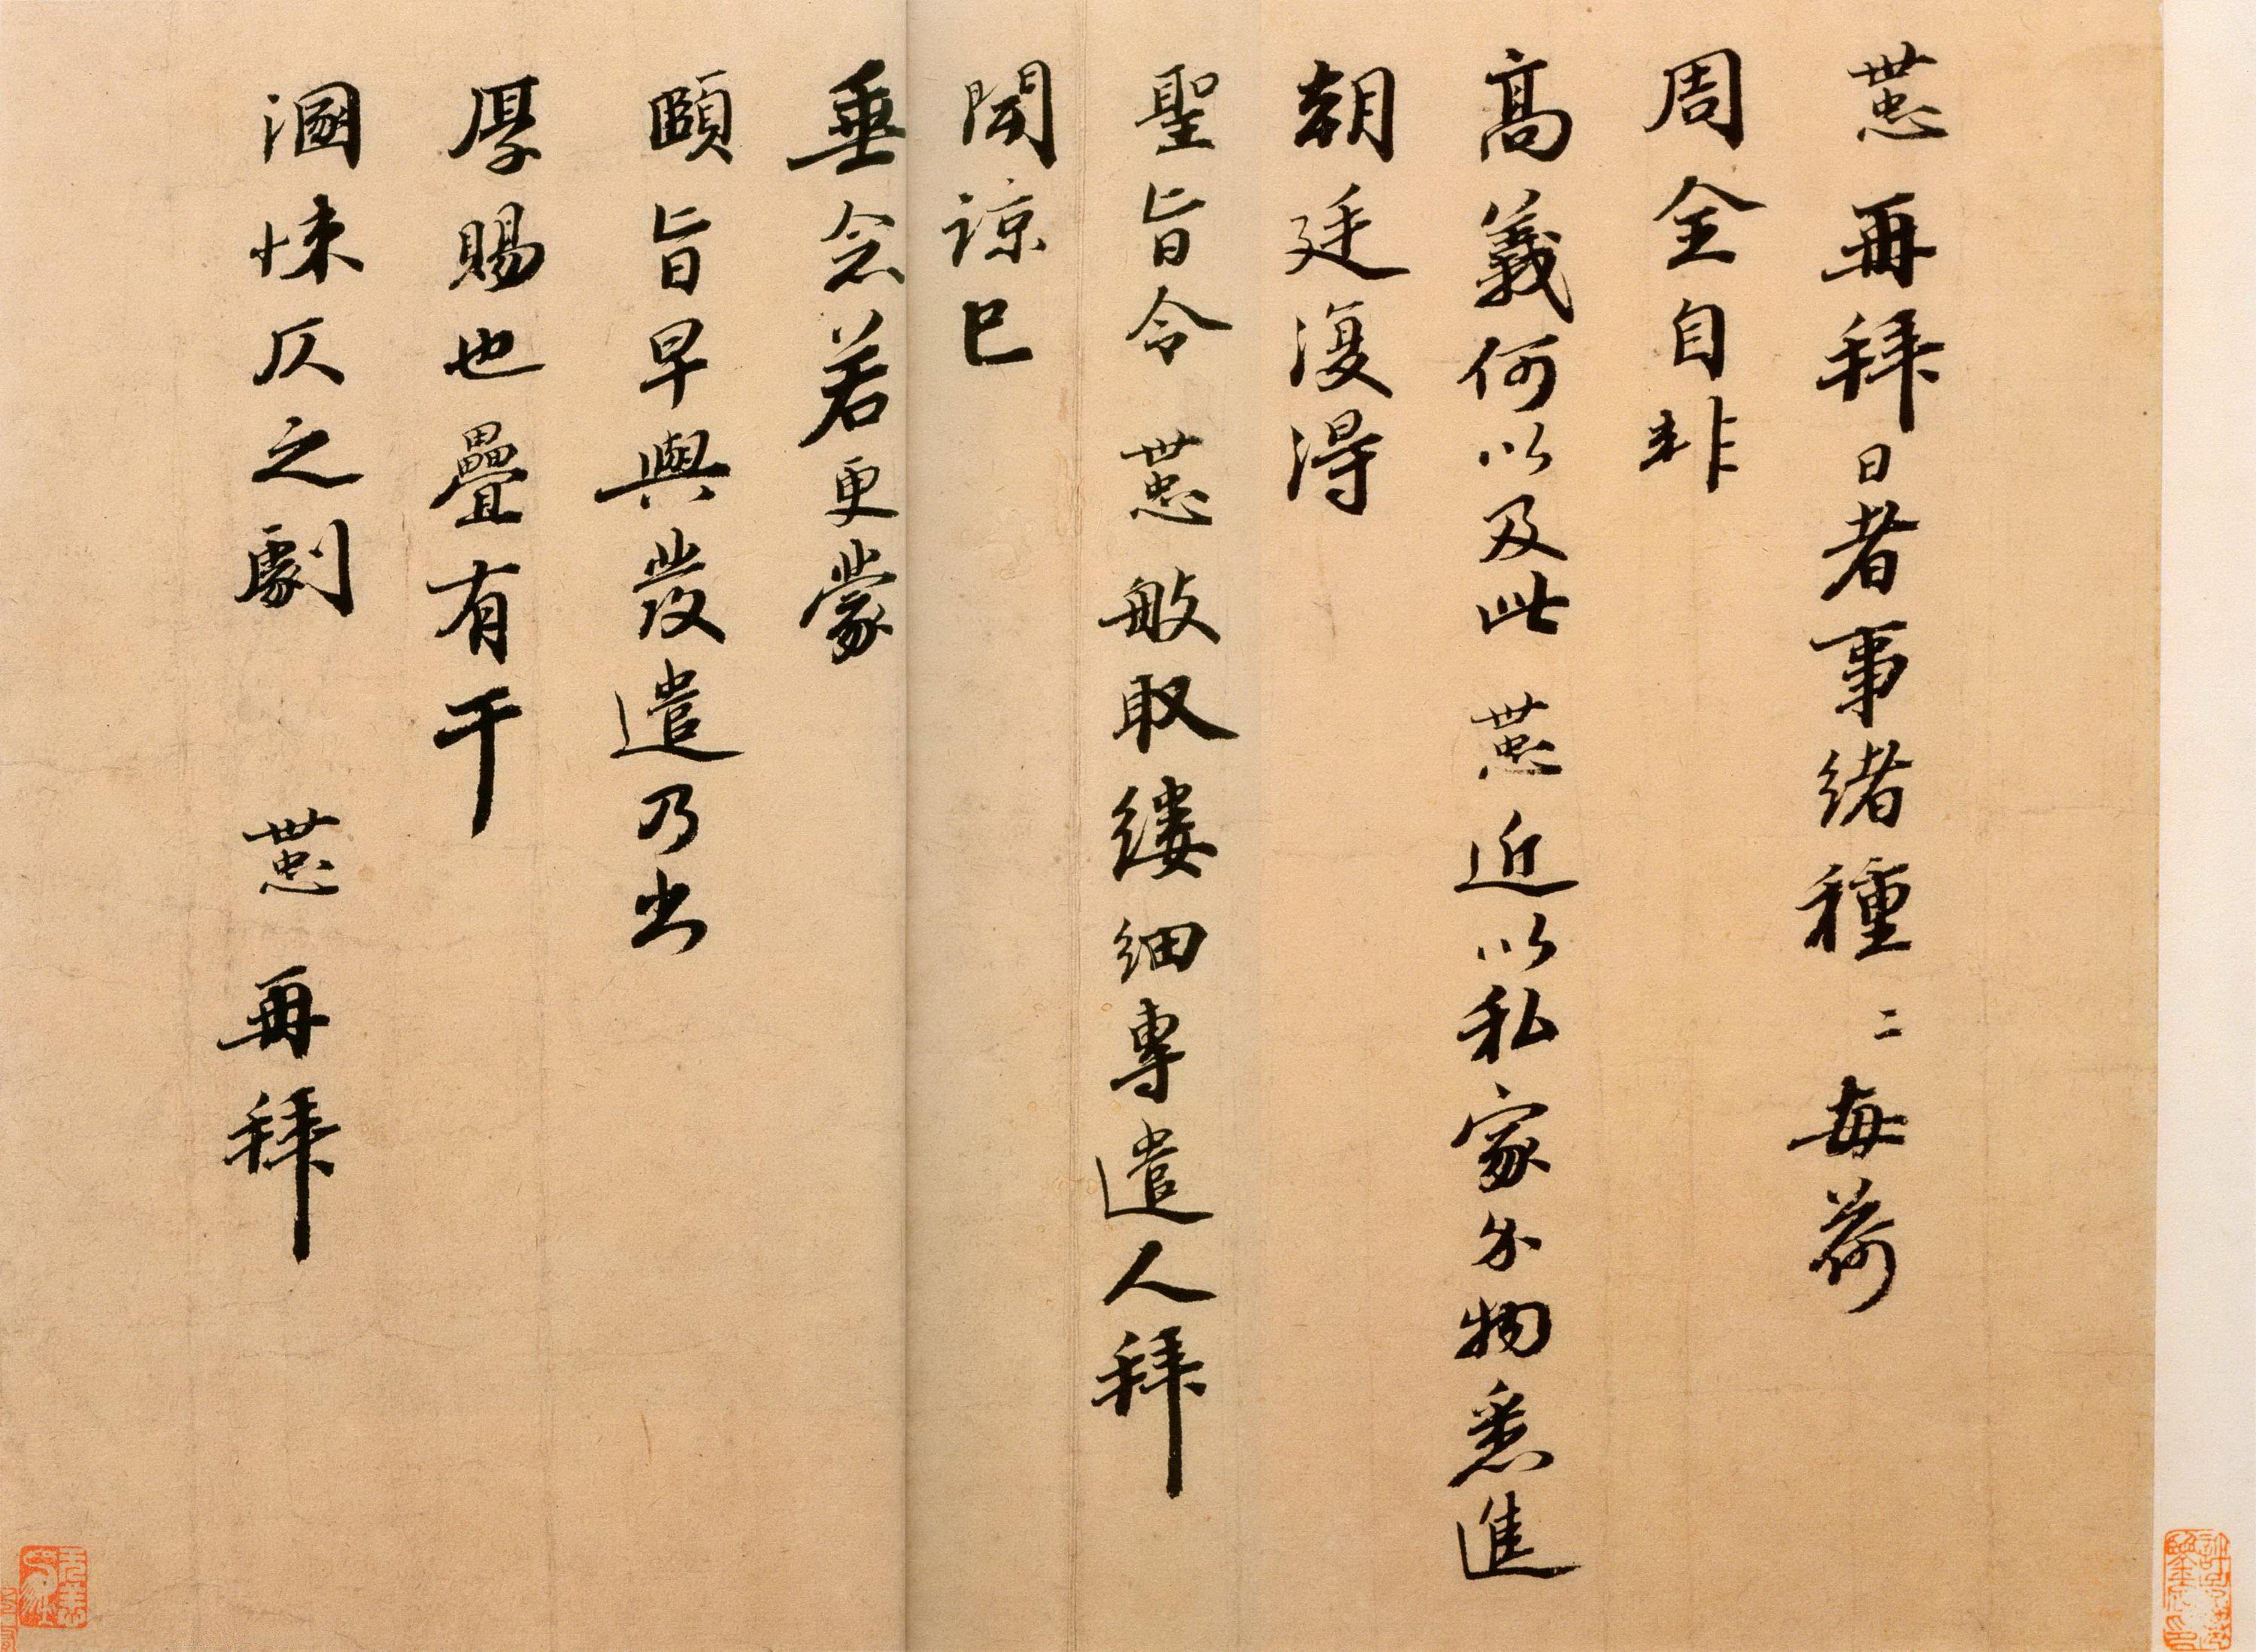 世忠再拜日者事緒種二每荷
周全自非
高義何以及此世忠近以私家分物悉進
朝廷復得
聖旨令世忠般取縷細專遣人拜
聞諒已
垂念若更蒙
頤旨早與發遣乃出
厚賜也疊有干
溷悚仄之劇世忠再拜